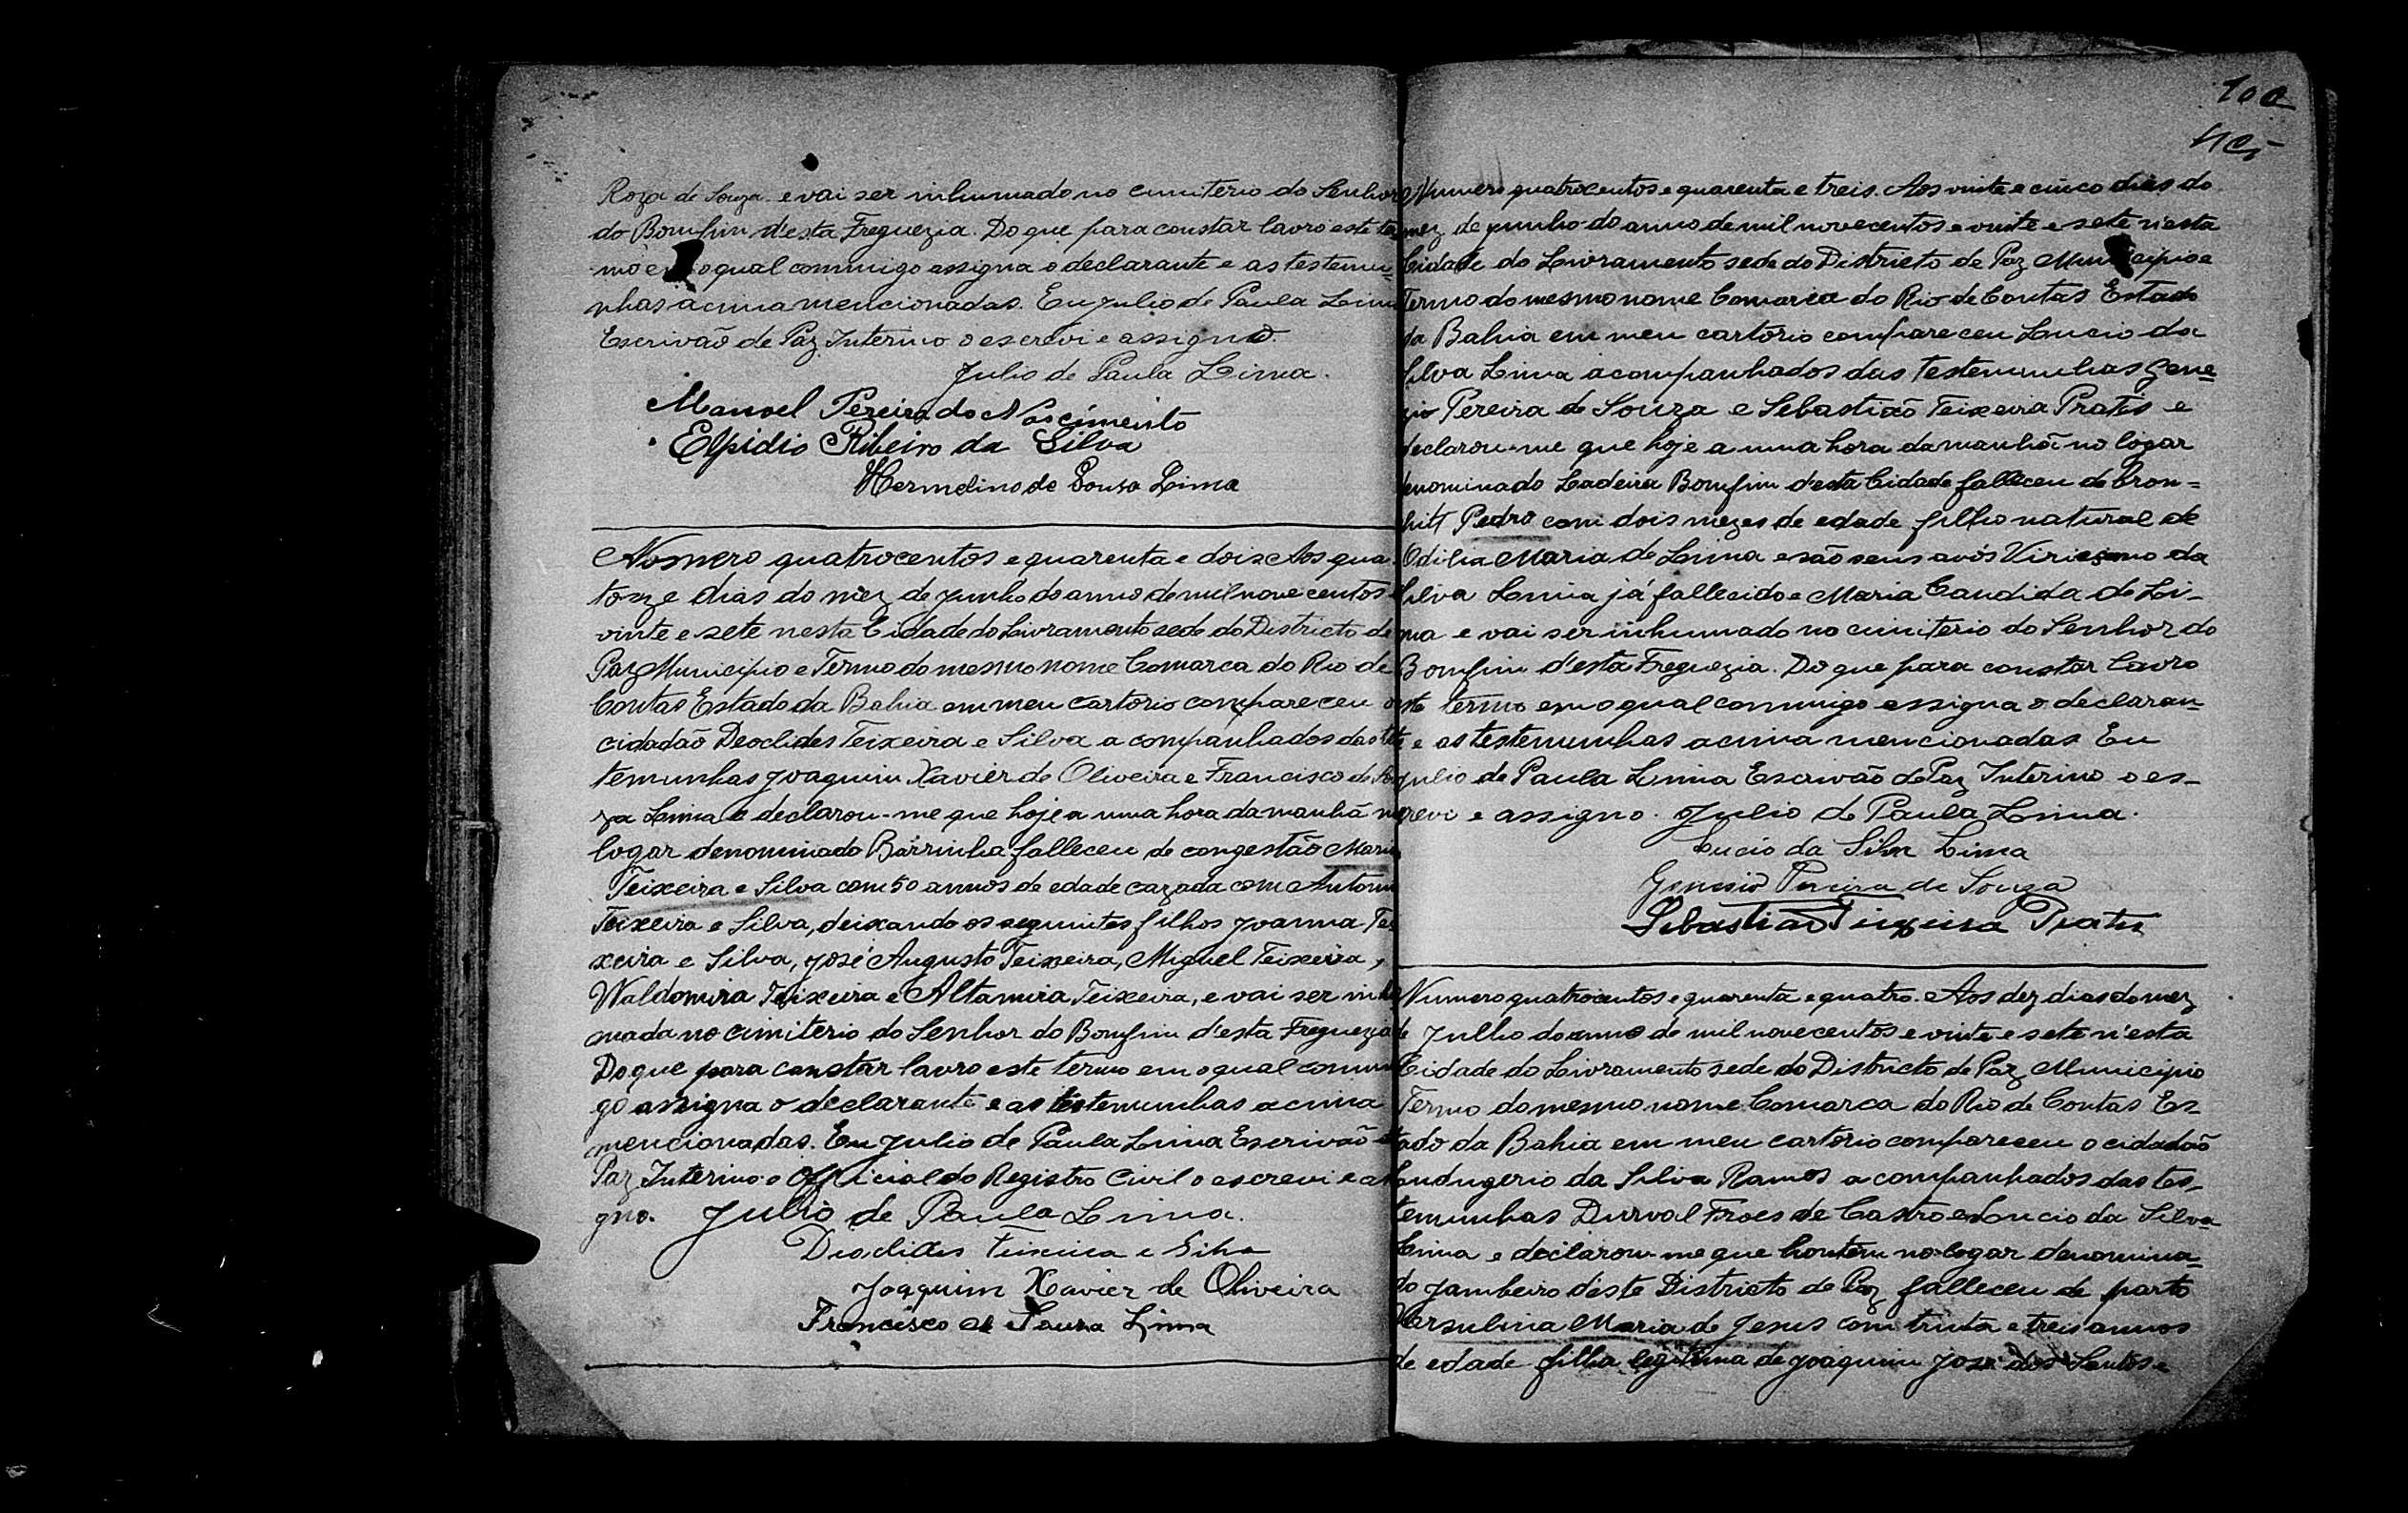 Roza de Souza e vai ser inhumado no cimiterio do Senhor
do Bomfim d'esta Freguezia. Do que para constar lavro este ter
mo e o qual commigo assigna o declarante e as testemu-
nhas acima mencionadas. Eu Julio de Paula Lima
Escrivão de Paz Interino o escrevi e assigno.
Julio de Paula Lima.
Manoel Pereira do Nascimento
Elpidio Ribeiro da Silva
Hermelino de Souza Lima
Nomero quatrocentos e quarenta e dois Aos qua
torze dias do mez de junho do anno de mil nove centos e
vinte e sete nesta Cidade do Livramento sede do Districto de
Paz Municipio e Termo do mesmo nome Comarca do Rio de
Contas Estado da Bahia em meu cartorio compareceu o
cidadão Deoclides Teixeira e Silva a companhados das tes
temunhas Joaquim Xavier de Oliveira e Francisco de Sou
za Lima e declarou-me que hoje a uma hora da manhã no
logar denominado Barrinha falleceu de congestão Maria
Teixeira e Silva com 50 annos de edade cazada com Antonio
Teixeira e Silva, deixando os seguintes filhos Joanna Tei
xeira e Silva, José Augusto Teixeira, Miguel Teixeira,
Waldomira Teixeira e Altamira Teixeira, e vai ser inhu
mada no cimiterio do Senhor do Bomfim d'esta Freguezia
Do que para constar lavro este termo em o qual commi
go assigna o declarante e as testemunhas acima
mencionadas. Eu Julio de Paula Lima Escrivão de
Paz Interino o Official do Registro Civil o escrevi e assi
gno. Julio de Paula Lima.
Deoclides Teixeira e Silva
Joaquim Xavier de Oliveira
Francisco de Souza Lima
100
Numero quatrocentos e quarenta e treis. Aos vinte e cinco dias do
mez de junho do anno de mil novecentos e vinte e sete n'esta
Cidade do Livramento sede do Districto de Paz Municipio e
Termo do mesmo nome Comarca do Rio de Contas Estado
da Bahia em meu cartorio compareceu Lucio da
Silva Lima acompanhados das testemunhas Gene
zio Pereira de Souza e Sebastião Teixeira Pratis e
declarou-me que hoje a uma hora da manhã no logar
denominado Ladeira Bomfim d'esta Cidade falleceu de bron=
chitt Pedro com dois mezes de edade filho natural de
Odilia Maria de Lima e são seus avós Viricimo da
Silva Lima já fallecido e Maria Candida de Li-
ma e vai ser inhumado no cimiterio do Senhor do
Bomfim d'esta Freguezia. Do que para constar lavro
este termo em o qual commigo assigna o declaran
te e as testemunhas acima mencionadas Eu
Julio de Paula Lima Escrivão de Paz Interino o es-
crevi e assigno. Julio de Paula Lima.
Lucio da Silva Lima
Genesio Pereira de Souza
Sebastião Teixeira Prates
Numero quatrocentos e quarenta e quatro. Aos dez dias do mez
de Julho do anno de mil novecentos e vinte e sete n'esta
Cidade do Livramento sede do Districto de Paz Municipio
Termo do mesmo nome Comarca do Rio de Contas Es
tado da Bahia em meu cartorio compareceu o cidadão
da Silva Ramos a companhados das tes-
temunhas Durval Froes de Castro e Lucio da Silva
Lima e declarou-me que hontem no logar denomina=
do Jambeiro d'este Districto de Paz falleceu de parto
Hersulina Maria de Jesus com trinta e treis annos
de edade filha legitima de Joaquim José dos Santos e